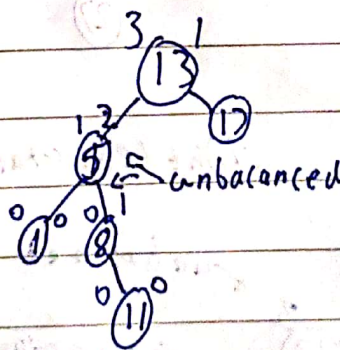 3 1
13
1 2
5
17
unbalanced
0 0
1
0 1
8
0 0
11